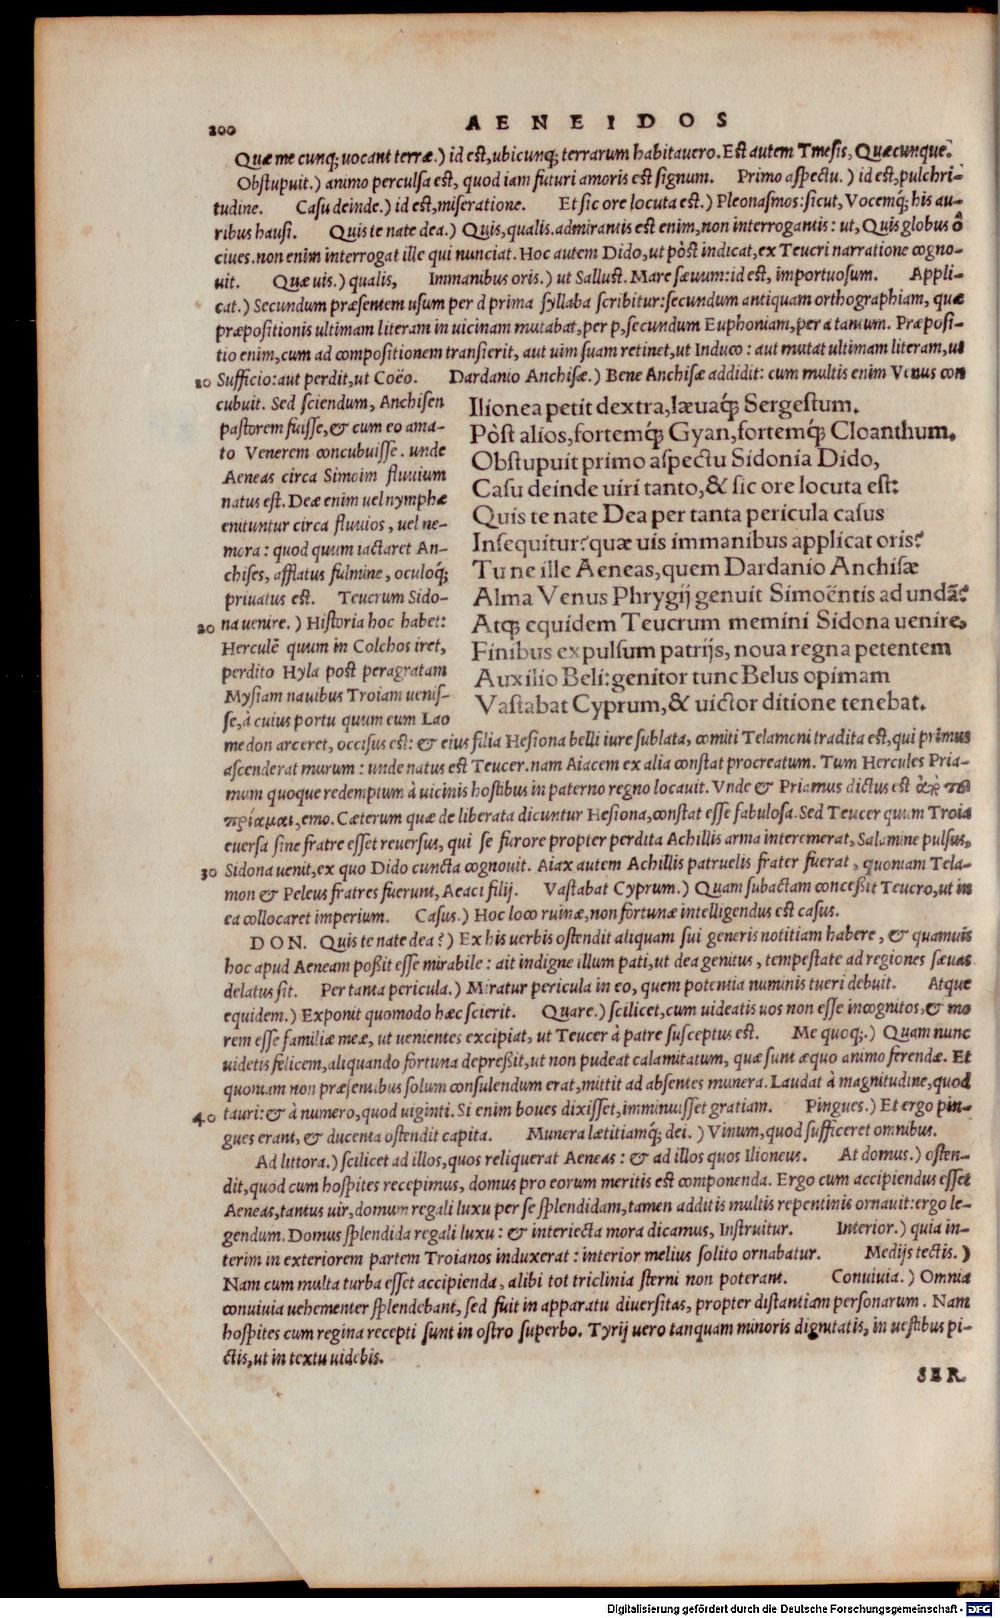 200 AENEIDOS
Quæ me cunq; uocant terræ.) id est, ubicunq; terrarum habitauero. Est autem Tmesis, Quæcunque.
Obstupuit.) animo perculsa est, quod iam futuri amoris est signum. Primo aspectu.) id est, pulchri-
tudine. Casu deinde.) id est, miseratione. Et sic ore locuta est.) Pleonasmos: sicut, Vocemq́; his au-
ribus hausi. Quis te nate dea.) Quis, qualis. admirantis est enim, non interrogantis: ut, Quis globus ô
ciues. non enim interrogat ille qui nunciat. Hoc autem Dido, ut pòst indicat, ex Teucri narratione cogno-
uit. Quæ uis.) qualis, Immanibus oris.) ut Sallust. Mare sæuum: id est, importuosum. Appli-
cat.) Secundum præsentem usum per d prima syllaba scribitur: secundum antiquam orthographiam, quæ
præpositionis ultimam literam in uicinam mutabat, per p, secundum Euphoniam, per a tantum. Præposi-
tio enim, cum ad compositionem transierit, aut uim suam retinet, ut Induco: aut mutat ultimam literam, ut
10 Sufficio: aut perdit, ut Coëo. Dardanio Anchisæ.) Bene Anchisæ addidit: cum multis enim Venus con
cubuit. Sed sciendum, Anchisen
pastorem fuisse, & cum eo ama-
to Venerem concubuisse. unde
Aeneas circa Simoim fluuium
natus est. Deæ enim uel nymphæ
enituntur circa fluuios, uel ne-
mora: quod quum iactaret An-
chises, afflatus fulmine, oculoq́;
priuatus est. Teucrum Sido-
20 na uenire.) Historia hoc habet:
Herculē quum in Colchos iret,
perdito Hyla post peragratam
Mysiam nauibus Troiam uenis-
se, à cuius portu quum eum Lao
Ilionea petit dextra, læuaq́; Sergestum.
Pòst alios, fortemq́; Gyan, fortemq́; Cloanthum.
Obstupuit primo aspectu Sidonia Dido,
Casu deinde uiri tanto, & sic ore locuta est:
Quis te nate Dea per tanta pericula casus
Insequitur? quæ uis immanibus applicat oris?
Tu ne ille Aeneas, quem Dardanio Anchisæ
Alma Venus Phrygij genuit Simoëntis ad undā?
Atq; equidem Teucrum memini Sidona uenire,
Finibus expulsum patrijs, noua regna petentem
Auxilio Beli: genitor tunc Belus opimam
Vastabat Cyprum, & uictor ditione tenebat.
medon arceret, occisus est: & eius filia Hesiona belli iure sublata, comiti Telamoni tradita est, qui primus
ascenderat murum: unde natus est Teucer. nam Aiacem ex alia constat procreatum. Tum Hercules Pria-
mum quoque redemptum à uicinis hostibus in paterno regno locauit. Vnde & Priamus dictus est ἀπὸ τοῦ
πρίαμαι, emo. Cæterum quæ de liberata dicuntur Hesiona, constat esse fabulosa. Sed Teucer quum Troia
euersa sine fratre esset reuersus, qui se furore propter perdita Achillis arma interemerat, Salamine pulsus,
30 Sidona uenit, ex quo Dido cuncta cognouit. Aiax autem Achillis patruelis frater fuerat, quoniam Tela-
mon & Peleus fratres fuerunt, Aeaci filij. Vastabat Cyprum.) Quam subactam conceßit Teucro, ut in
ea collocaret imperium. Casus.) Hoc loco ruinæ, non fortunæ intelligendus est casus.
DON. Quis te nate dea?) Ex his uerbis ostendit aliquam sui generis notitiam habere, & quamuis
hoc apud Aeneam poßit esse mirabile: ait indigne illum pati, ut dea genitus, tempestate ad regiones sæuas
delatus sit. Per tanta pericula.) Miratur pericula in eo, quem potentia numinis tueri debuit. Atque
equidem.) Exponit quomodo hæc scierit. Quare.) scilicet, cum uideatis uos non esse incognitos, & mo
rem esse familiæ meæ, ut uenientes excipiat, ut Teucer à patre susceptus est. Me quoq;.) Quam nunc
uidetis felicem, aliquando fortuna depreßit, ut non pudeat calamitatum, quæ sunt æquo animo ferendæ. Et
quoniam non præsentibus solum consulendum erat, mittit ad absentes munera. Laudat à magnitudine, quod
40 tauri: & à numero, quod uiginti. Si enim boues dixisset, imminuisset gratiam. Pingues.) Et ergo pin-
gues erant, & ducenta ostendit capita. Munera lætitiamq́; dei.) Vinum, quod sufficeret omnibus.
Ad littora.) scilicet ad illos, quos reliquerat Aeneas: & ad illos quos Ilioneus. At domus.) osten-
dit, quod cum hospites recepimus, domus pro eorum meritis est componenda. Ergo cum accipiendus esset
Aeneas, tantus uir, domum regali luxu per se splendidam, tamen additis multis repentinis ornauit: ergo le-
gendum. Domus splendida regali luxu: & interiecta mora dicamus, Instruitur. Interior.) quia in-
terim in exteriorem partem Troianos induxerat: interior melius solito ornabatur. Medijs tectis.)
Nam cum multa turba esset accipienda, alibi tot triclinia sterni non poterant. Conuiuia.) Omnia
conuiuia uehementer splendebant, sed fuit in apparatu diuersitas, propter distantiam personarum. Nam
hospites cum regina recepti sunt in ostro superbo. Tyrij uero tanquam minoris dignitatis, in uestibus pi-
ctis, ut in textu uidebis.
SER.
Digitalisierung gefördert durch die Deutsche Forschungsgemeinschaft - DFG